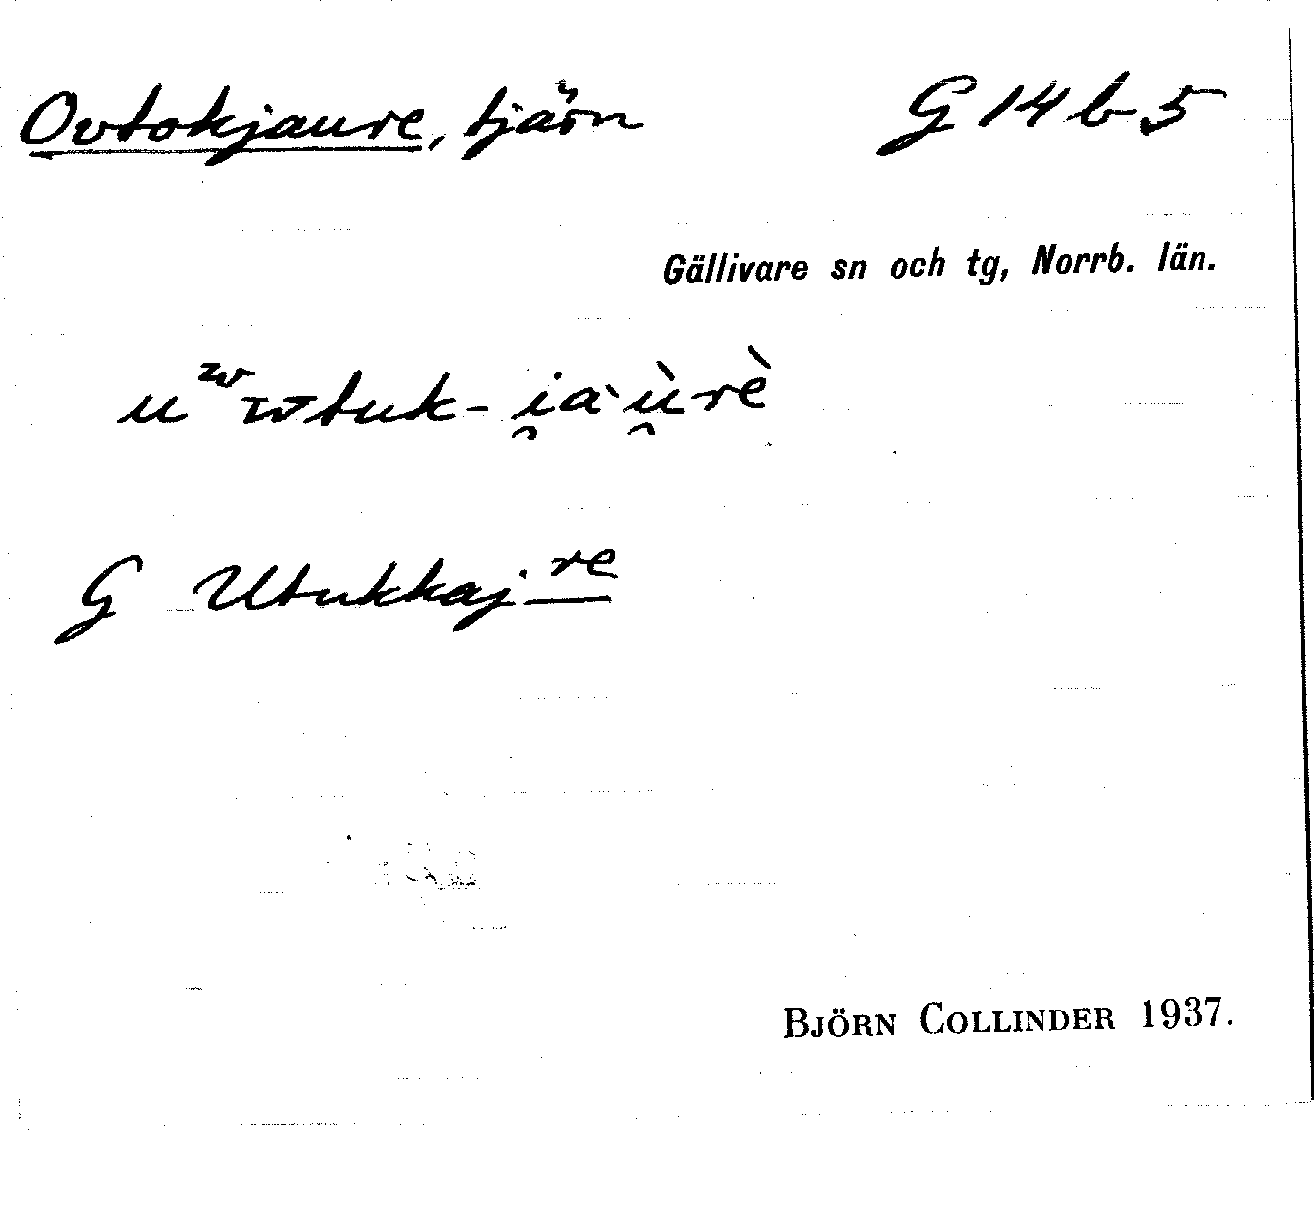 Ovtokjaure, tjärn G 14 b 5
Gällivare sn och tg, Norrb. län.
uʷwtuk-i̯aˋù̯rè
G Utukkaj.re
BJÖRN COLLINDER 1937.